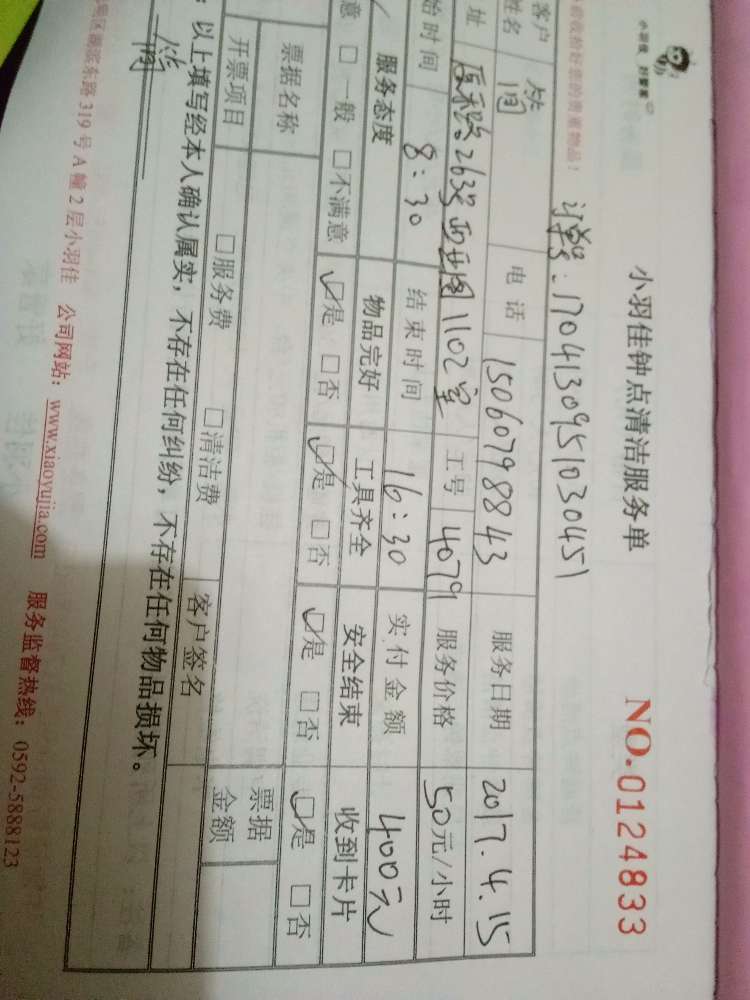 小羽佳 好管家
小羽佳钟点清洁服务单
NO.0124833
前收拾好您的贵重物品!
订单号:1704130951030451
客户姓名
电话 15060798843
服务日期 2017.4.15
址 263号
1102室
工号 4079
服务价格 50元/小时
始时间 8:30
结束时间 16:30
实付金额 400元
服务态度
物品完好
工具齐全
安全结束
收到卡片
意 □一般 □不满意
☑是 □否
☑是 □否
☑是 □否
☑是 □否
票据名称
票据金额
开票项目
□服务费 □清洁费
客户签名
:以上填写经本人确认属实,不存在任何纠纷,不存在任何物品损坏。
美区湖滨东路319号A幢2层小羽佳 公司网站:www.xiaoyujia.com 服务监督热线:0592-5888123